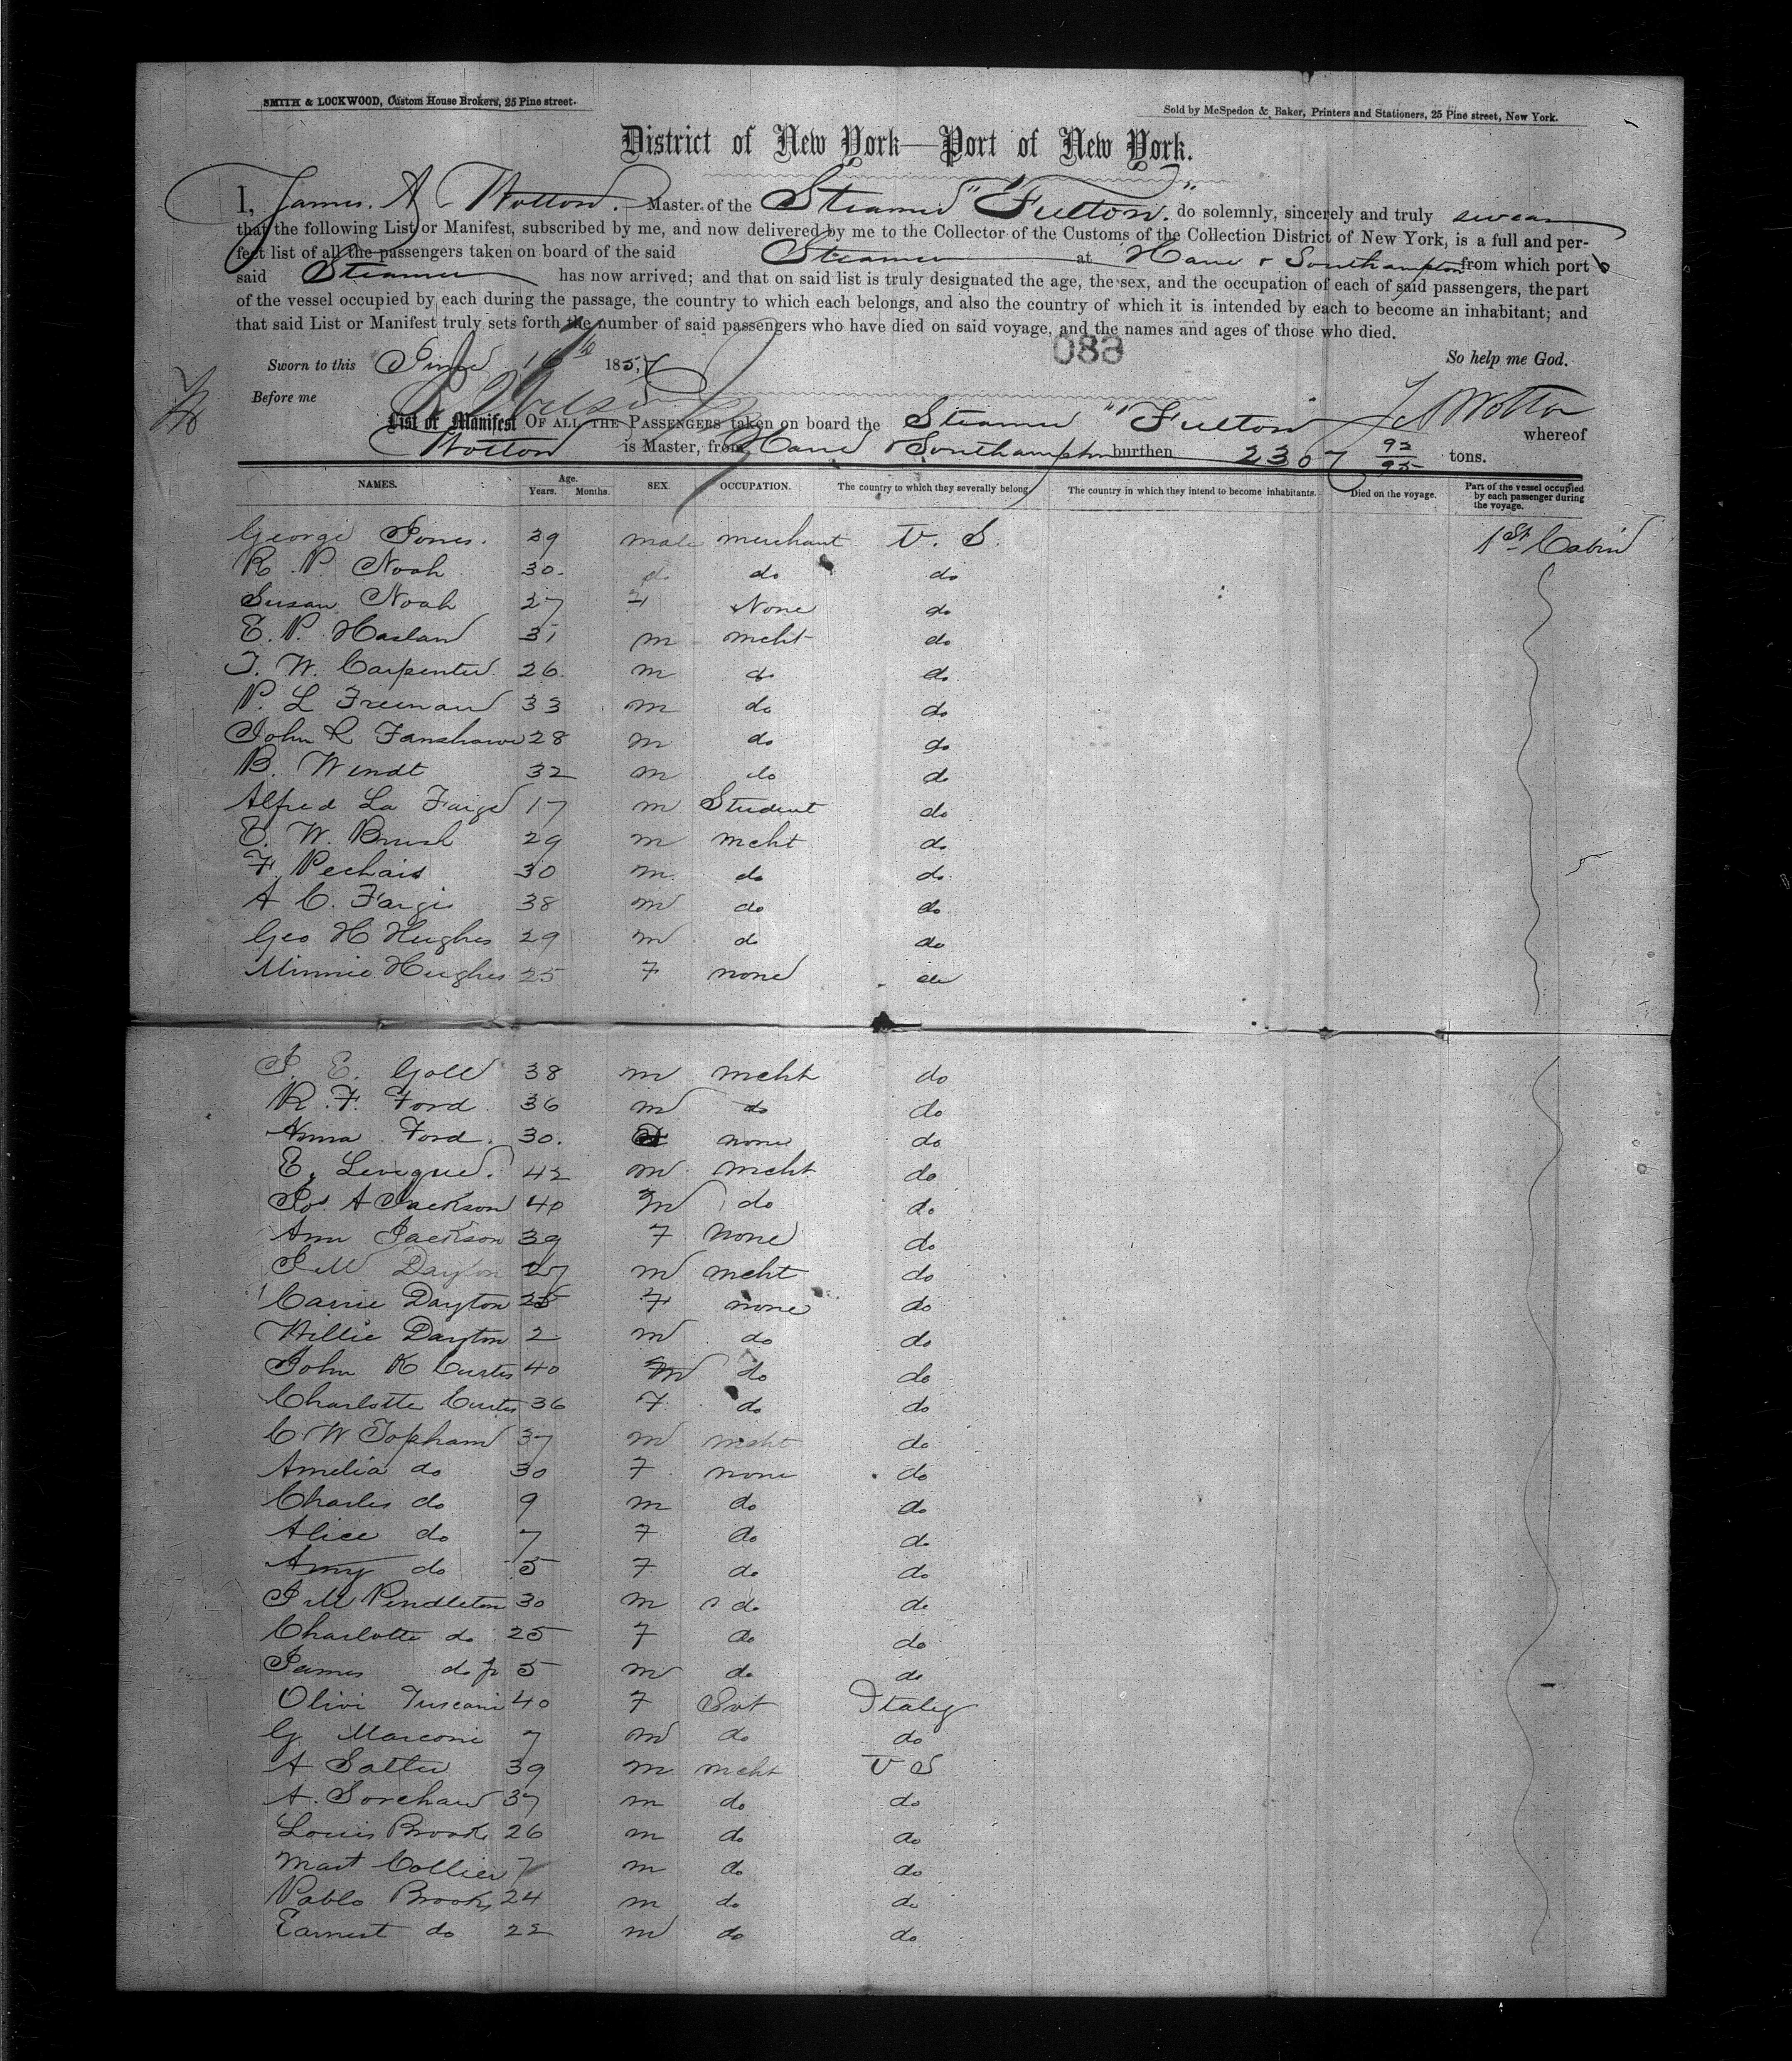 SMITH & LOCKWOOD, Custom House Brokers, 25 Pine street.
Sold by McSpedon & Baker, Printers and Stationers, 25 Pine street, New York.
District of New York—Port of New York.
I, James. A Wotton. Master of the Steamer "Fulton". do solemnly, sincerely and truly swear
that the following List or Manifest, subscribed by me, and now delivered by me to the Collector of the Customs of the Collection District of New York, is a full and per-
fect list of all the passengers taken on board of the said Steamer at Havre & Southampton from which port
said Steamer has now arrived; and that on said list is truly designated the age, the sex, and the occupation of each of said passengers, the part
of the vessel occupied by each during the passage, the country to which each belongs, and also the country of which it is intended by each to become an inhabitant; and
that said List or Manifest truly sets forth the number of said passengers who have died on said voyage, and the names and ages of those who died.
Sworn to this June 16th 1857 So help me God.
Before me J A Wotton
List or Manifest OF ALL THE PASSENGERS taken on board the Steamer "Fulton" whereof
Wotton is Master, from Havre & Southampton burthen 2307 92/95 tons.
NAMES. Age. Years. Months. SEX. OCCUPATION. The country to which they severally belong. The country in which they intend to become inhabitants. Died on the voyage. Part of the vessel occupied by each passenger during the voyage.
George Jones. 39 male merchant U. S. 1st Cabin
R. P. Noah 30. do do do
Susan Noah 27 F None do
E. P. Haslan 31 m mcht do
T. W. Carpenter. 26. m do do
P. L Freeman 33 m do do
John R Fanshawe 28 m do do
B. Wendt 32 m do do
Alfred La Farge 17 m Student do
E. W. Brush 29 m mcht do
F. Pechais 30 m. do do
A C. Fargis 38 m do do
Geo H Hughes 29 m do do
Minnie Hughes 25 F none do
J. E. Goll 38 m mcht do
R. F. Ford 36 m do do
Anna Ford. 30. none do
E. Leveque. 42 m mcht do
Jos A Jackson 40 m do do
Ann Jackson 39 F none do
J M Dayton 27 m mcht do
Carrie Dayton 25 F none do
Willie Dayton 2 m do do
John K Curtis 40 m do do
Charlotte Curtis 36 F. do do
C W Topham 37 m mcht do
Amelia do 30 F. none do
Charles do 9 m do do
Alice do 7 F do do
Amy do 5 F do do
J M Pendleton 30 m do do
Charlotte do 25 F do do
James do jr 5 m do do
Olivi Tuscani 40 F Svt Italy
G Marconi 7 m do do
A Salter 39 m mcht U S
A. Sorchan 37 m do do
Louis Brooks 26 m do do
Mart Collier 7 m do do
Pablo Brooks 24 m do do
Earnest do 22 m do do